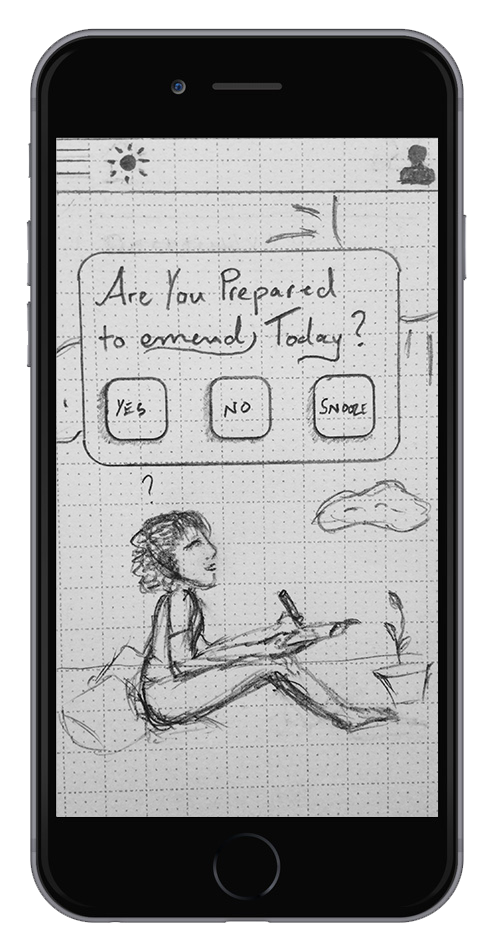 Are You Prepared
to emend, Today?
YES
NO
SNOOZE
?